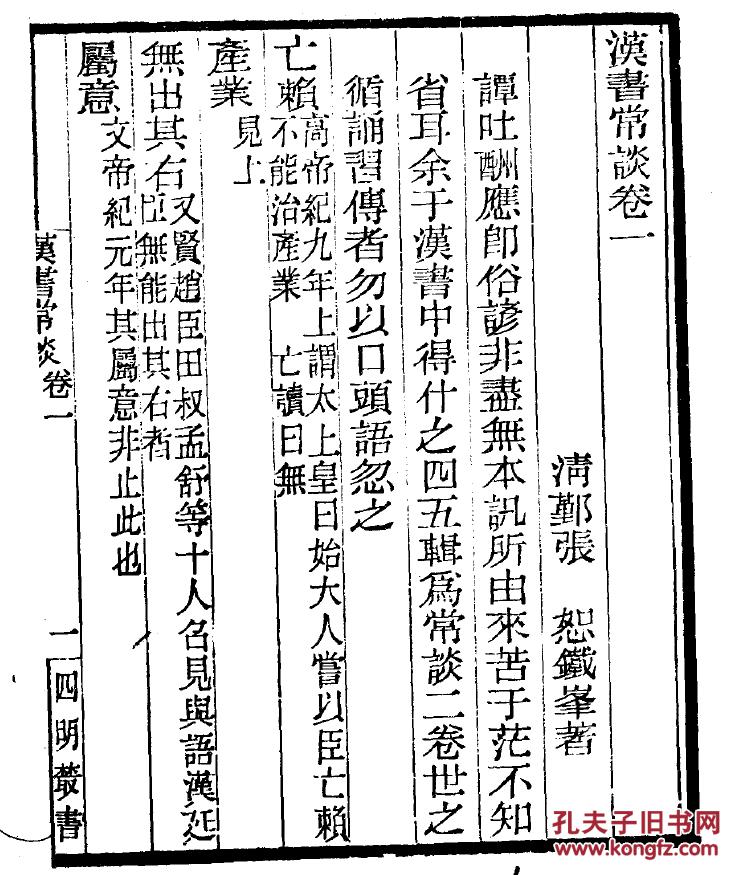 漢書常談卷一
清鄞張　恕鐵峯著
譚吐酬應卽俗諺非盡無本訊所由來苦于茫不知
省耳余于漢書中得什之四五輯爲常談二卷世之
循誦習傳者勿以口頭語忽之
亡賴高帝紀九年上謂太上皇曰始大人嘗以臣亡賴
不能治產業　亡讀曰無
產業見上
無出其右又賢趙臣田叔孟舒等十人名見與語漢廷
臣無能出其右者
屬意文帝紀元年其屬意非止此也
漢書常談卷一
一
四明叢書
孔夫子旧书网
www.kongfz.com